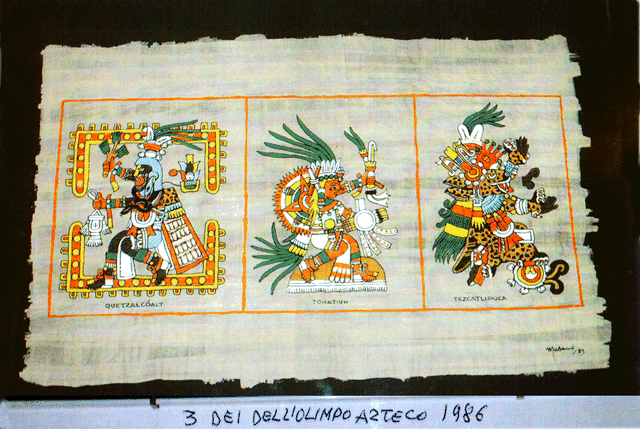 QUETZALCÓALT
TONATIUH
TEZCATLIPUCA
3 DEI DELL'OLIMPO AZTECO 1986